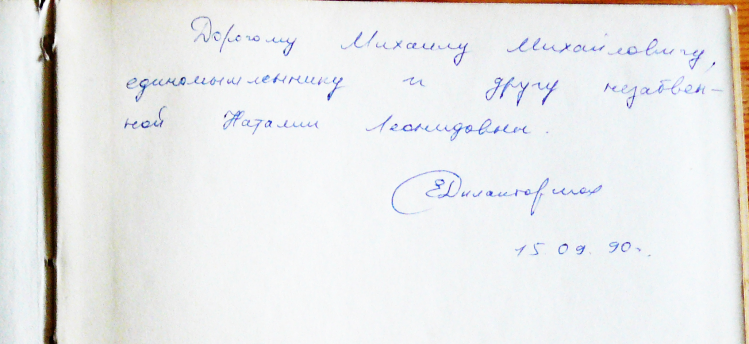 Дорогому Михаилу Михайловичу,
единомышленнику и другу незабвен-
ной Наталии Леонидовны.
ЕДилакторских
15.09.90г.